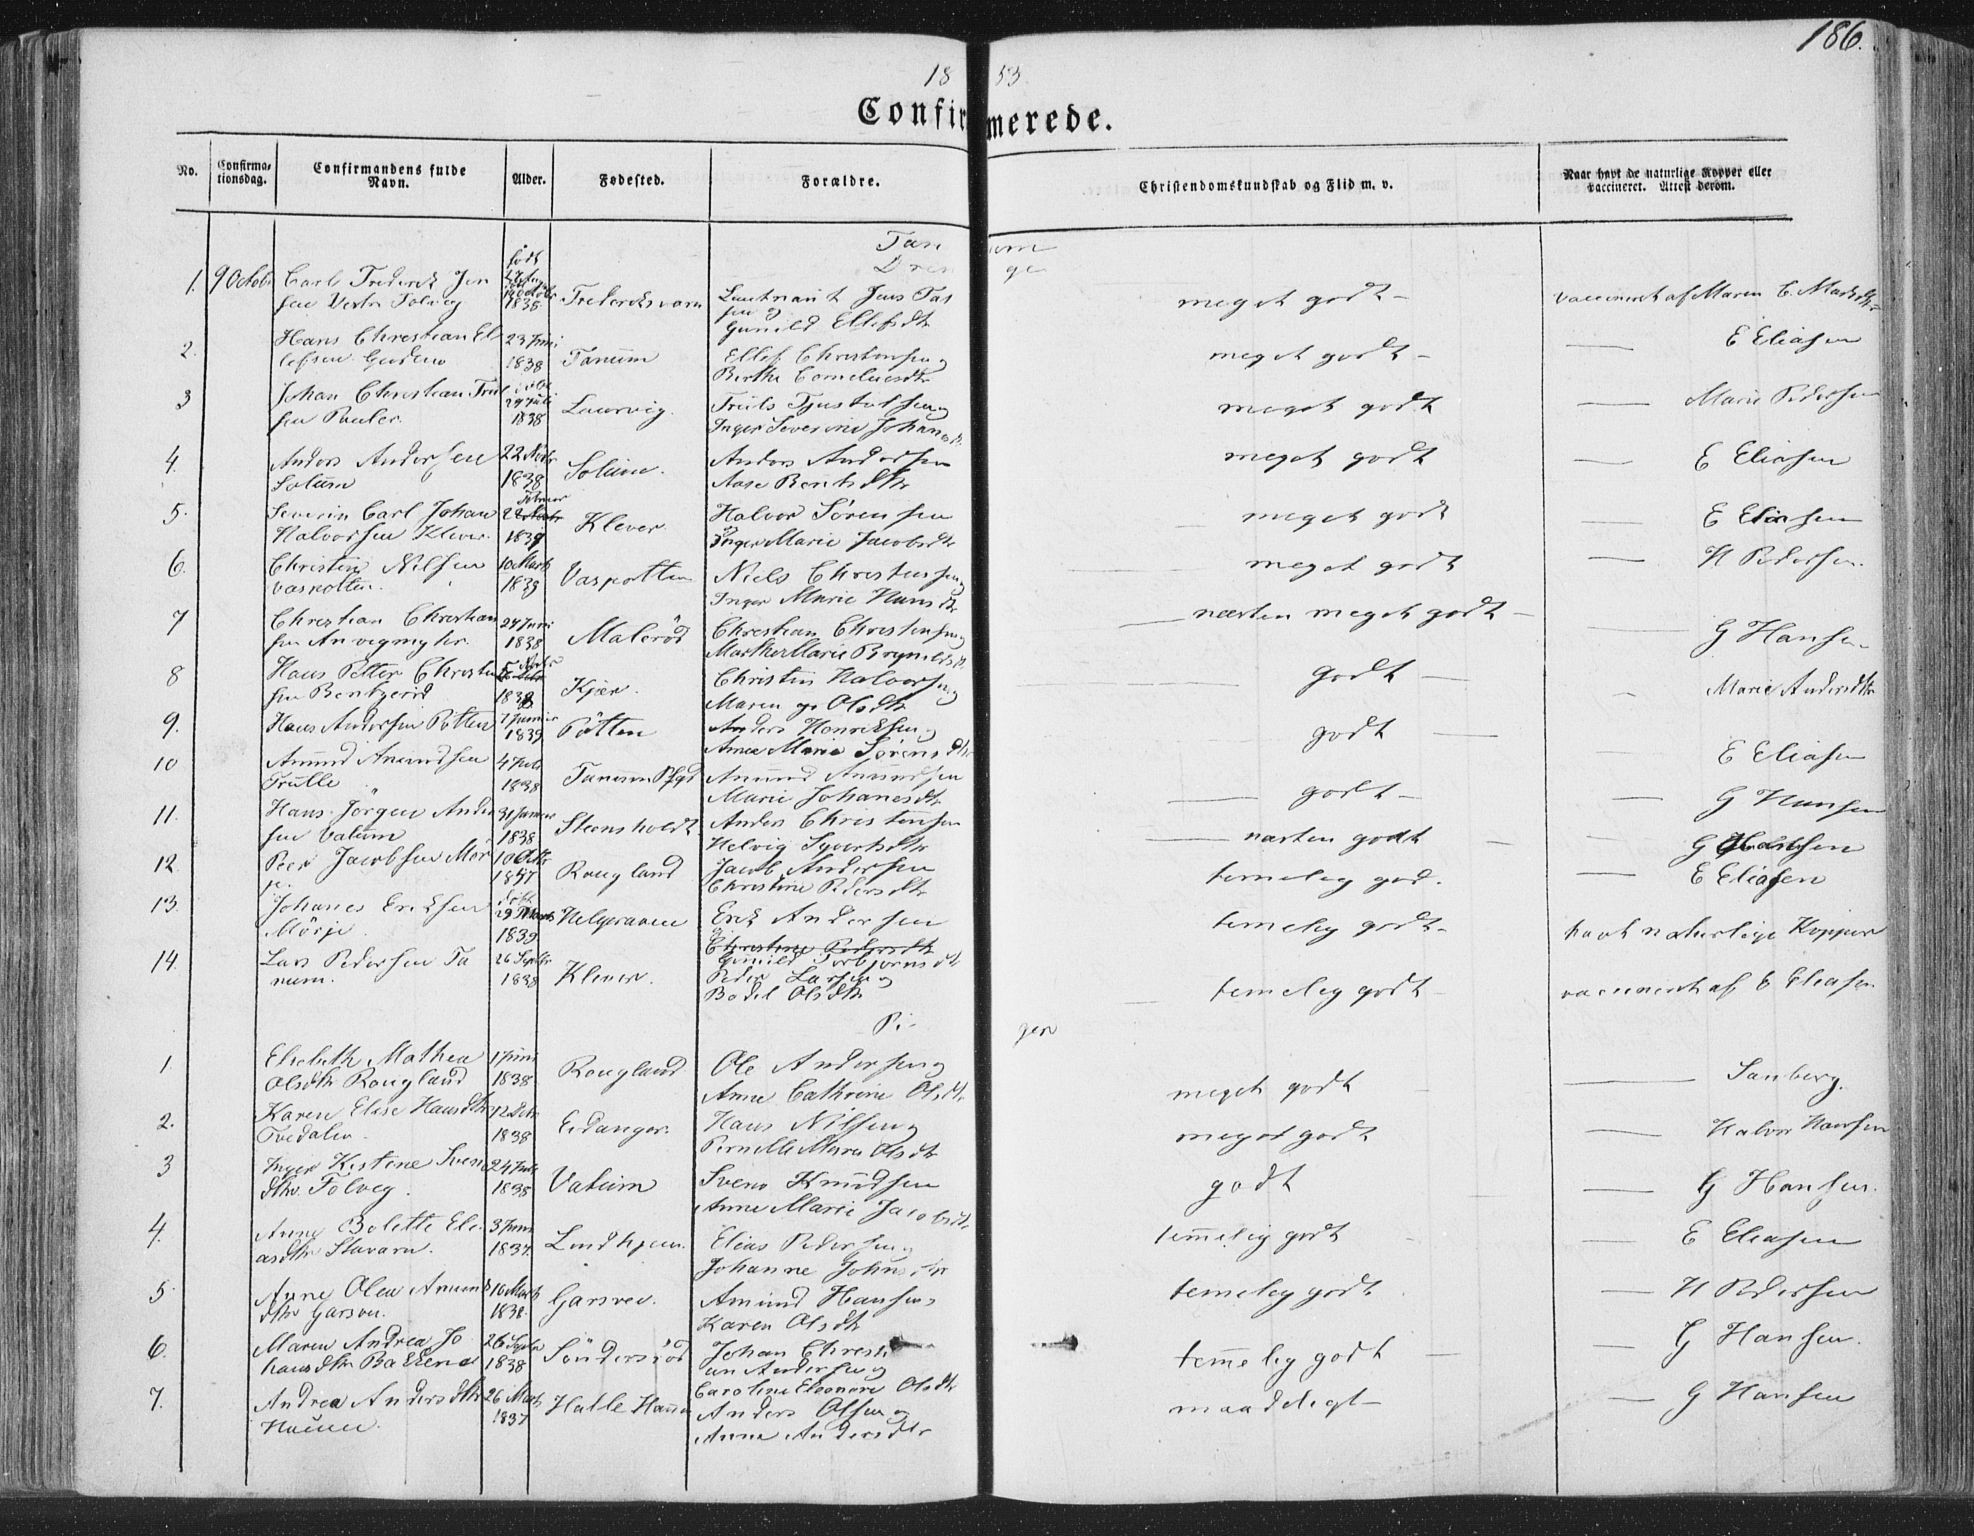 186.
18 53
Confirmerede.
No.
Confirma-
tionsdag.
Confirmandens fulde
Navn.
Alder.
Fødested.
Forældre.
Christendomskundskab og Flid m. v.
Naar havt de naturlige Kopper eller
vaccineret. Attest derom.
Tanum
Drenge
1. 9 Octobr Carl Frederek Jen
sen Vestr Folveg
født
1838
Frederiksværn
Lieutnant Jens
sen og
Gunild Ellefsdtr
meget godt –
vaccineret af Maren C.
2. Hans Christian El
lefsen
23 Juni
1838
Tanum
Ellef Christensen og
Birthe Corneliusdtr
meget godt –
— E Eliasen
3 Johan Christian Truls
sen Pauler.
29 Juli
1838
Laurvig.
Truls og
Inger Severine Johansdtr
meget godt
— Marie Pedersen
4. Anders Andersen
Solum
22 Novbr
1838
Solum.
Anders Andersen
Aase Berntsdtr
meget godt
— E Eliasen
5. Severin Carl Johan
Halvorsen Klever.
22
1839
Klever
Halvor Sørensen
og
Inger Marie Jacobsdtr
meget godt
— E Eliasen
6. Christen Nilsen
Vaspotten.
10 Marts
1839
Vaspotten
Niels Christensen og
Inger Marie Hansdtr
meget godt
— H Pedersen.
7 Christian Christian
sen
24 Juni
1838
Malerød
Christian Christensen og
Marthe Marie Brynildsdtr
næsten meget godt –
— G Hansen
8 Hans Petter Christen
sen Bentzerød
1838
Kjær.
Christen Halvorsen og
Maren Olsdtr
godt —
Marie Andersdtr
9. Hans Andersen Potten
7 Januar
1839
Pøtten
Anders Henriksen og
Anne Marie Sørensdtr
godt —
— E Eliasen
10 Amund Amundsen
Trulle
4 Juli
1838
Tanum Pfgd
Amund Amundsen
Marie Johanesdtr
godt –
— G Hansen
11. Hans Jörgen Ander
sen Vatum
31 Januar
1838
Steensholdt
Anders Christensen
Helvig Syvertsdtr
næsten godt
— G Hansen
12 Peer Jacobsen Mør
je.
10 Octbr
1837
Rougland
Jacob Andersen
Christine Pedersdtr
temelig god.
— E Eliasen
13. Johanes Eriksen
Mörje.
29 Marts
1839
Helgeraaen
Erik Andersen
og
Christine Pedersdtr
Gunild Torbjørnsdtr
temelig godt –
havt naturlige Kopper
14. Lars Pedersen Ta
num.
26 Septbr
1838
Klever.
Peder Larsen og
Bodel Olsdtr
temelig godt
vaccineret af E Eliasen
Piger
1. Elisabeth Mathea
Olsdtr Rougland
1 Juni
1838
Rougland
Ole Andersen og
Anne Cathrine Olsdtr
meget godt
— Sanberg.
2. Karen Elise Hansdtr
Tvedalen.
12
1838
Eidanger.
Hans Nilsen og
Pernille Marie Olsdtr
meget godt
— Halvor Hansen
3 Inger Kistene Svens
dtr Folveg.
24
1838
Vatum
Svend Knudsen
Anne Marie Jacobsdtr
godt
— G Hansen.
4. Anne Bolette Eli
asdtr Stavarn.
3 Juni
1837.
Lindhjem.
Elias Pedersen og
Johanne Johnsdtr
temmelig godt
— E Eliasen
5 Anne Olea Amunds
dtr Garsveu.
16 Marts
1838
Garsveu.
Amund Hansen
Karen Olsdtr
temelig godt
— H Pedersen
6. Maren Andrea Jo
hansdtr Bakkene
26 Septbr
1838
Søndersrød
Johan Christi
an Andersen og
Caroline Eleonore Olsdtr
temmelig godt
— G Hansen.
7. Andrea Andersdtr
Hauen
26 Marts
1837
Halle
Anders Olsen og
Anne Andersdtr
maadeligt –
— G Hansen